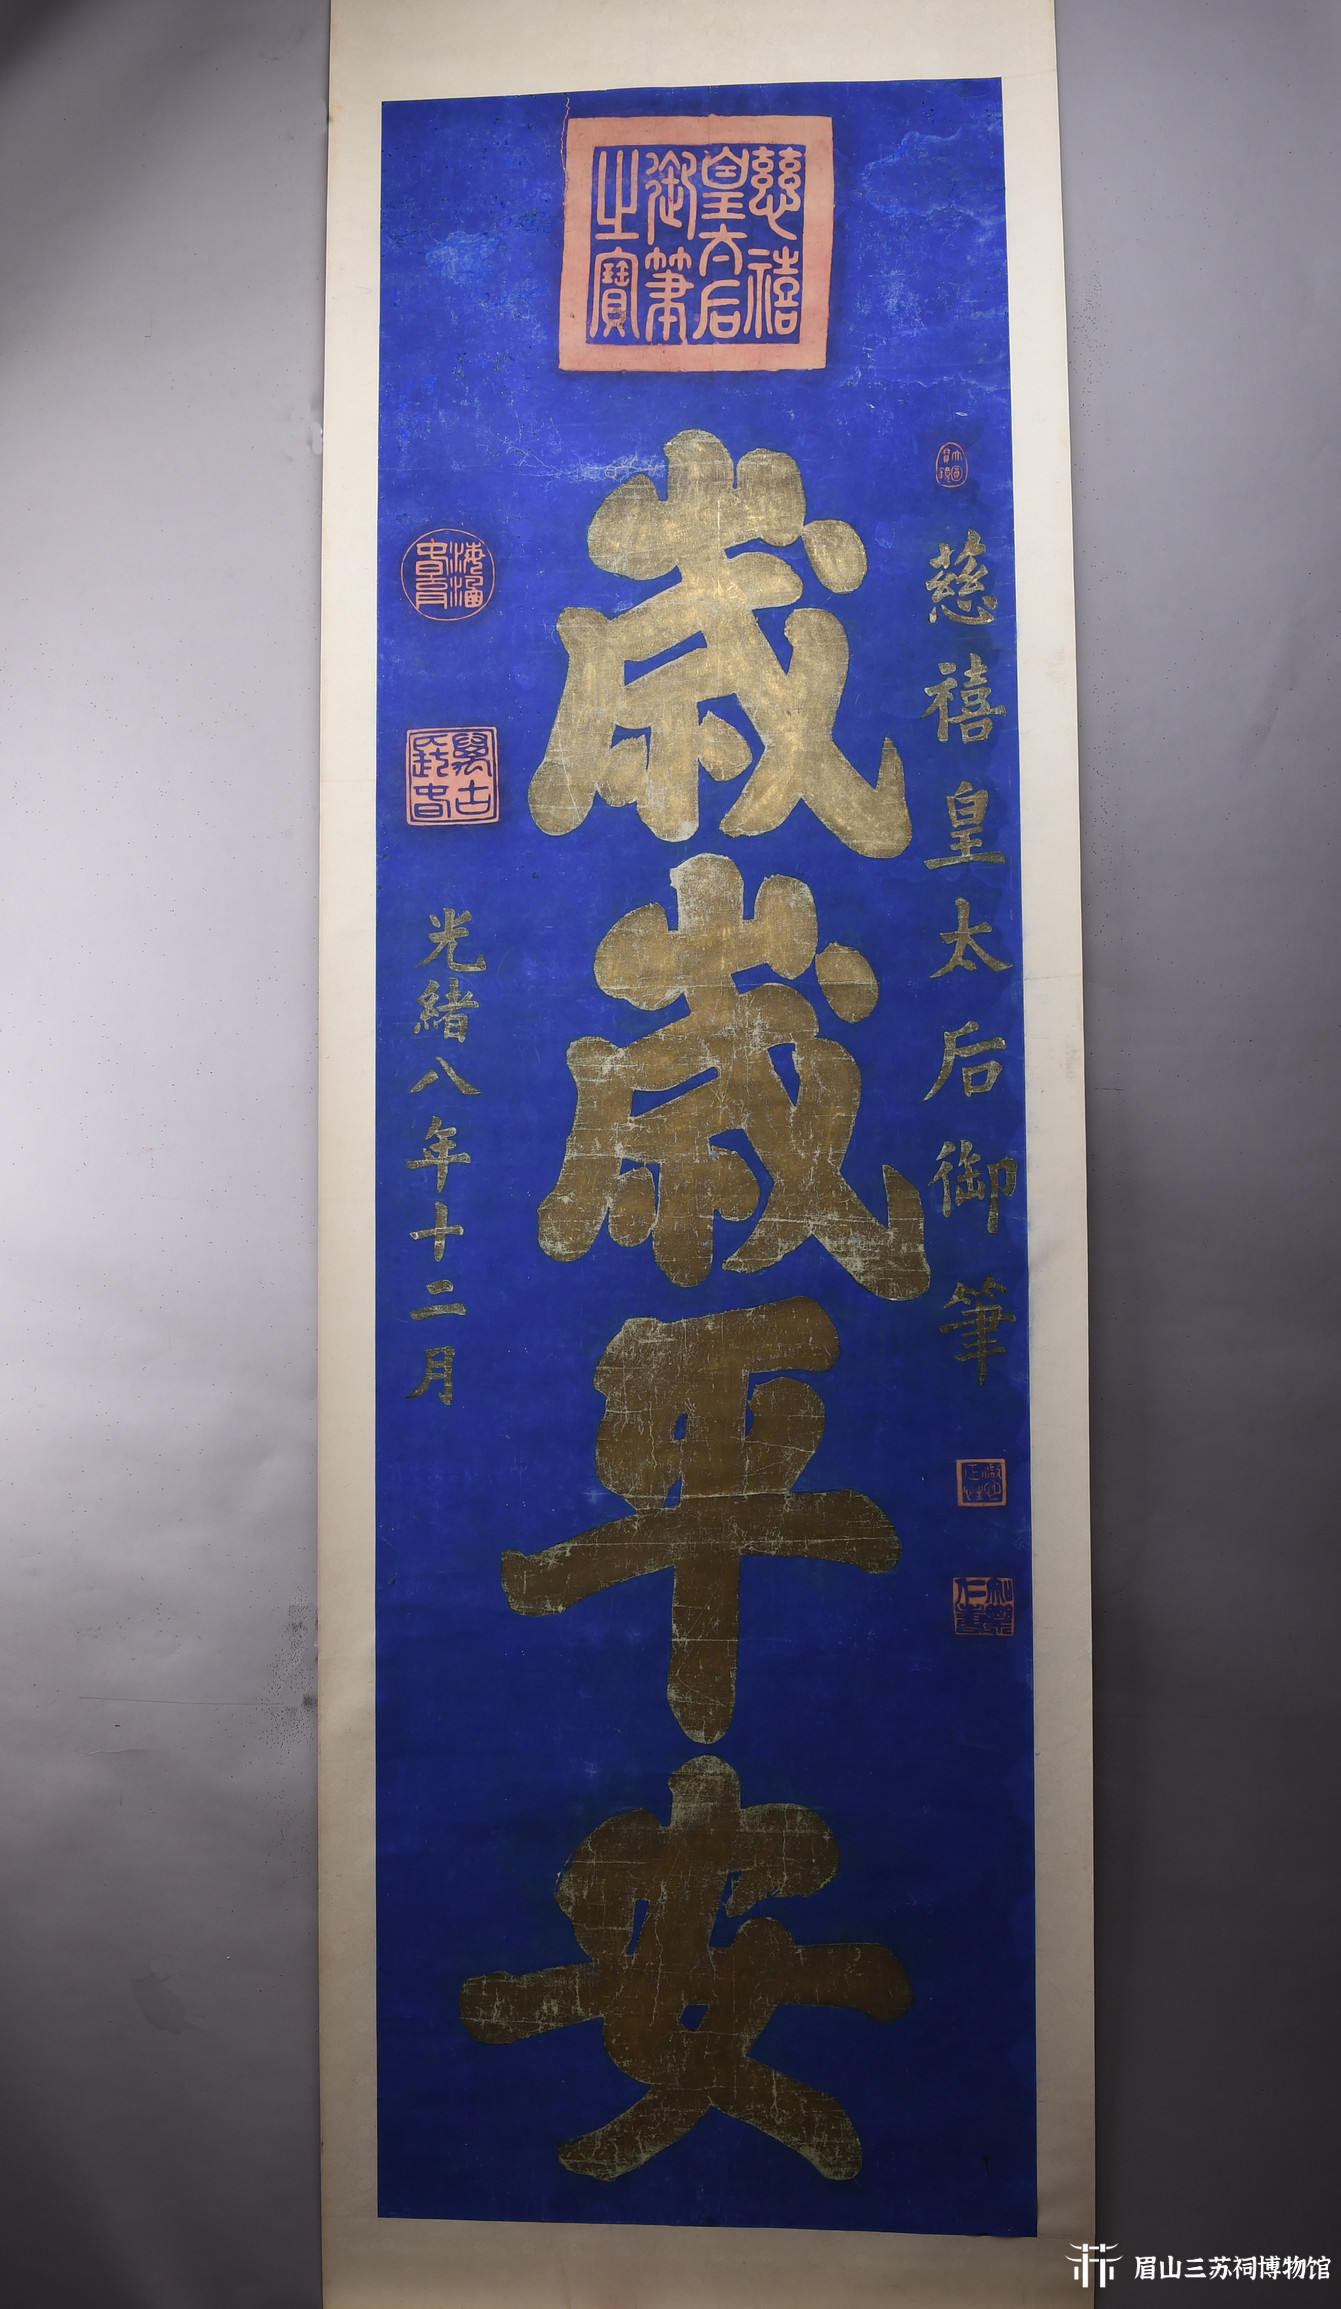 慈禧皇太后御筆之寶
慈禧皇太后御筆
歲歲平安
光緒八年十二月
眉山三苏祠博物馆